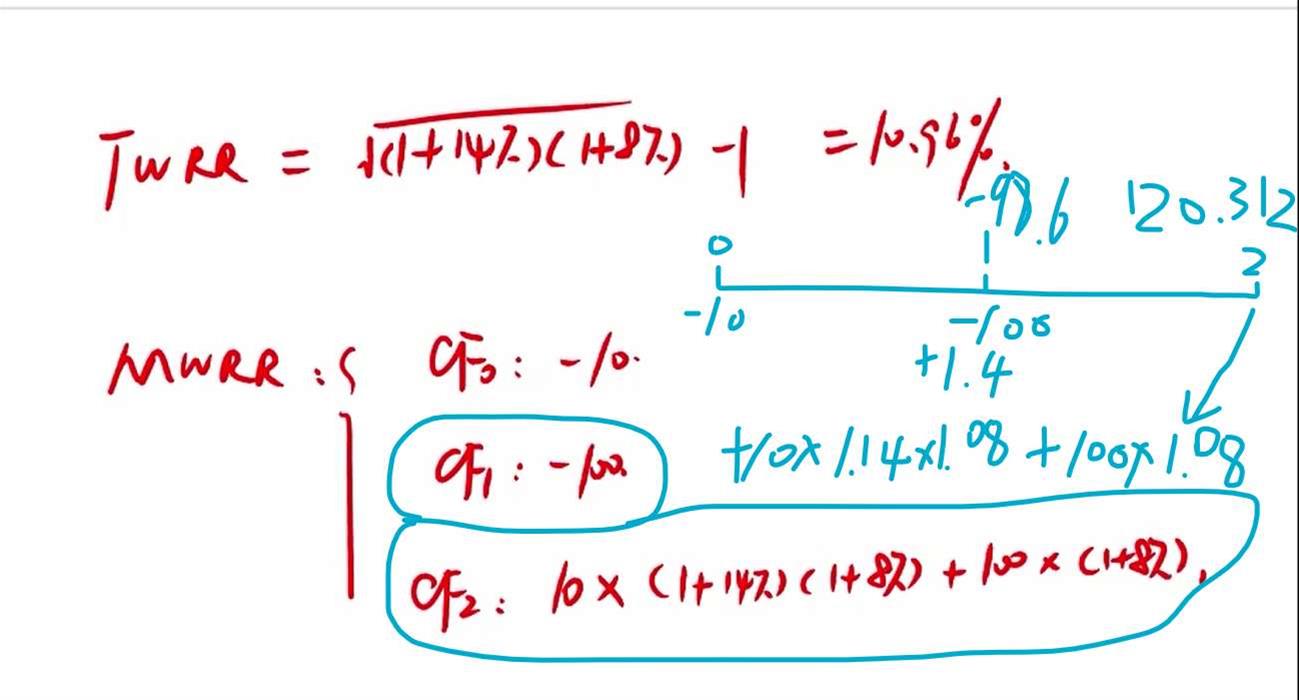 TWRR = √(1+14%)(1+8%) -1 = 10.96%.
-98.6 120.312
0 1 2
-10 -100
+1.4
MWRR : { CF₀ : -10.
+10×1.14×1.08 +100×1.08
CF₁ : -100.
CF₂ : 10 × (1+14%) (1+8%) + 100 × (1+8%).